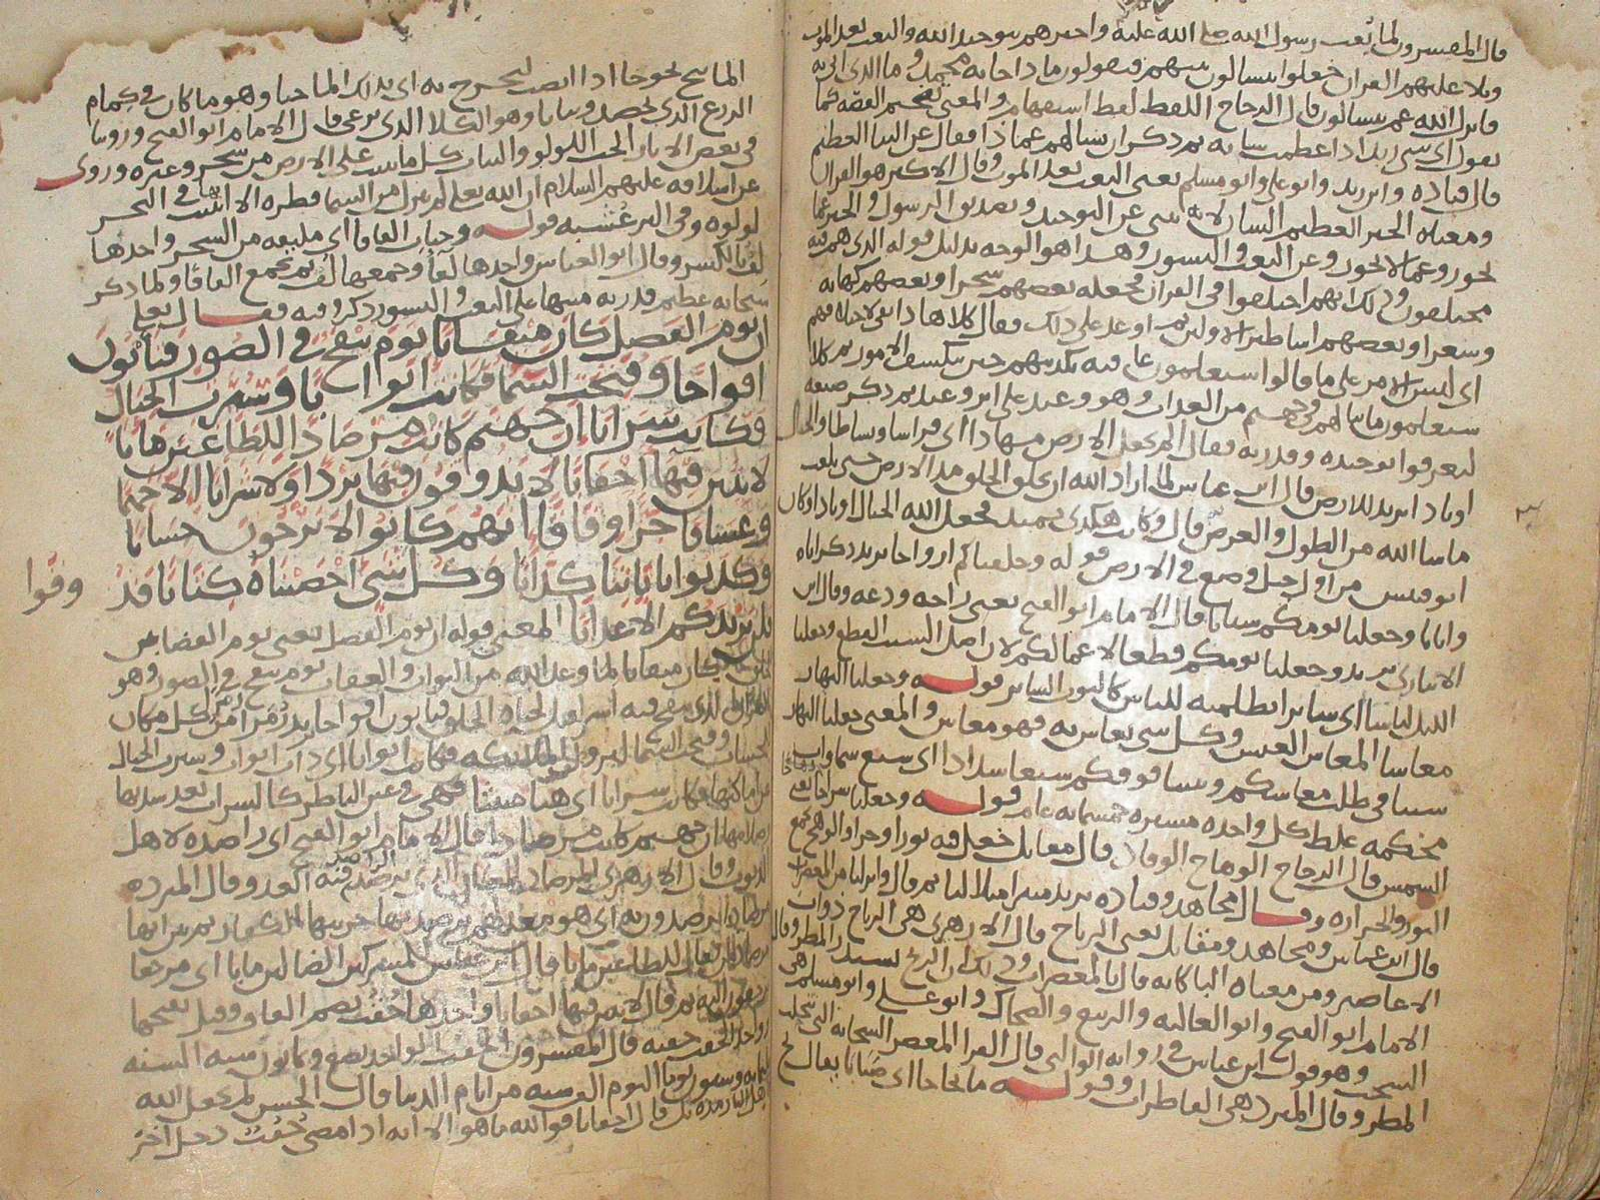 قال المفسرون لما بعث رسول الله صلى الله عليه واخبرهم بتوحيد الله والبعث بعد الموت
وتلا عليهم القران جعلوا يتسالون بينهم فيقولون ماذا جا به محمد وما الذي اتى به
فانزل الله عم يتسالون قال الزجاج اللفظ لفظ استفهام والمعنى تفخيم القصه كما
تقول اي شي زيد اذا عظمت شانه ثم ذكر ان تسالهم عما ذا فقال عن النبا العظيم
قال قتاده وابن زيد وابو علي وابو مسلم يعني البعث بعد الموت وقال الاكثر هو القران
ومعناه الخبر العظيم الشان لانه ينبي عن التوحيد وتصديق الرسول والخبر عما
يجوز وعما لا يجوز وعن البعث والنشور وهذا هو الوجه بدليل قوله الذي هم فيه
مختلفون وذلك انهم اختلفوا في القران فجعله بعضهم سحرا وبعضهم كهانه
وشعرا وبعضهم اساطير الاولين ثم اوعد على ذلك فقال كلا
اي ليس الامر على ما قالوا سيعلمون عاقبه تكذيبهم حين تنكشف الامور ثم كلا
سيعلمون ما ينالهم في جهنم من العذاب وهو وعيد على اثر وعيد ثم ذكر صنعه
ليعرفوا توحيده وقدرته فقال الم نجعل الارض مهادا اي فراشا وبساطا والجبال
اوتادا يريد للارض قال ابن عباس لما اراد الله ان يخلق الخلق مد الارض حتى بلغت
ما شا الله من الطول والعرض قال وكانت هكذا تميد فجعل الله الجبال اوتادا وكان
ابو قبيس من اول جبل وضع في الارض قوله وخلقناكم ازواجا يريد ذكرانا
واناثا وجعلنا نومكم سباتا قال الامام ابو الفتح يعني راحه ودعه وقال ابن
الانباري يريد وجعلنا نومكم قطعا لاعمالكم لان اصل السبت القطع وجعلنا
الليل لباسا اي ساترا بظلمته للناس كالثوب الساتر قوله وجعلنا النهار
معاشا المعاش العيش وكل شي يعاش به فهو معاش والمعنى جعلنا النهار
سببا في طلب معاشكم وبنينا فوقكم سبعا شدادا اي سبع سماوات
محكمه غلظ كل واحده مسيره خمسمايه عام قوله وجعلنا سراجا وهاجا يعني
الشمس قال الزجاج الوهاج الوقاد قال مقاتل جعل فيه نورا وحرا والوهج يجمع
النور والحراره وقال مجاهد وقتاده يريد منيرا متلاليا ثم قال وانزلنا من المعصرات
قال ابن عباس ومجاهد ومقاتل يعني الرياح قال الازهري هي الرياح ذوات
الاعاصير ومن معناه البا كانه قال بالمعصرات وذلك ان الريح تستدر المطر وقال
الامام ابو الفتح وابو العاليه والربيع والضحاك وابو علي وابو مسلم هي
السحب وهو قول ابن عباس في روايه الوالبي قال الفرا المعصر السحابه التي تتحلب
المطر وقال المبرد هي القاطرات وقوله ما ثجاجا اي صبابا يقال ثج
الما يثج ثجوجا اذا انصب لنخرج به اي بذلك الما حبا وهو ما كان في كمام
الزرع الذي يحصد ونباتا وهو الكلا الذي يرعى قال الامام ابو الفتح وروينا
في بعض الاثار الحب اللولو والنبات كل ما ينبت على الارض من شجر وغيره وروى
عن اسلافه عليهم السلام ان الله تعلى لم ينزل من السما قطره الا انبت بها في البحر
لولوه وفي البر عشبه قوله وجنات الفافا اي ملتفه من الشجر واحدها
لف بالكسر وقال ابو العباس واحدها لفا وجمعها لف ثم يجمع الفافا ولما ذكر
سبحانه عظيم قدرته منبها على البعث والنشور ذكر وقته فقال تعلى
ان يوم الفصل كان ميقاتا يوم ينفخ في الصور فتاتون
افواجا وفتحت السما فكانت ابوابا وسيرت الجبال
فكانت سرابا ان جهنم كانت مرصادا للطاغين مابا
لابثين فيها احقابا لا يذوقون فيها بردا ولا شرابا الا حميما
وغساقا جزا وفاقا انهم كانوا لا يرجون حسابا
وكذبوا باياتنا كذابا وكل شي احصيناه كتابا فذ
وقوا
فلن نزيدكم الا عذابا المعنى قوله ان يوم الفصل يعني يوم القضا بين
الخلق كان ميقاتا لما وعد الله من الثواب والعقاب يوم ينفخ في الصور وهو
القرن الذي ينفخ فيه اسرافيل لحياه الخلق فتاتون افواجا يريد زمرا زمرا من كل مكان
للحساب وفتحت السما لنزول الملايكه فكانت ابوابا اي ذات ابواب وسيرت الجبال
عن اماكنها فكانت سرابا اي هبا منبثا فهي في عين الناظر كالسراب
ان جهنم كانت مرصادا قال الامام ابو الفتح اي راصده لاهل
الذنوب وقال الازهري المرصاد المكان الذي يرصد الراصد فيه العدو وقال المبرد
قال ابن عباس للمشركين الضالين مابا اي مرجعا
ثم قال لابثين فيها احقابا واحدها حقب بضم القاف وقيل بفتحها
وواحد الحقب حقبه قال المفسرون الحقب الواحد بضع وثمانون سنه السنه
ثلاثمايه وستون يوما اليوم الف سنه من ايام الدنيا قال الحسن لم يجعل الله
لاهل النار مده بل قال احقابا فوالله ما هو الا انه اذا مضى حقب دخل اخر